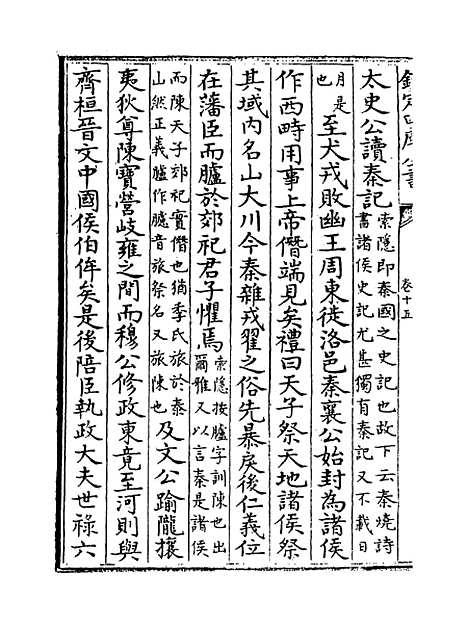 欽定四庫全書
卷十五
太史公讀秦記索隱即秦國之史記也故下云秦燒詩
書諸侯史記尤甚獨有秦記又不載日
月是
也至犬戎敗幽王周東徙洛邑秦襄公始封為諸侯
作西畤用事上帝僭端見矣禮曰天子祭天地諸侯祭
其域内名山大川今秦雜戎翟之俗先暴戾後仁義位
在藩臣而臚於郊祀君子懼焉索隱按臚字訓陳也出
爾雅又以言秦是諸侯
而陳天子郊祀實僭也猶季氏旅於泰
山然正義臚作臚音旅祭名又旅陳也及文公踰隴攘
夷狄尊陳寶營岐雍之間而穆公修政東竟至河則與
齊桓晉文中國侯伯侔矣是後陪臣執政大夫世祿六